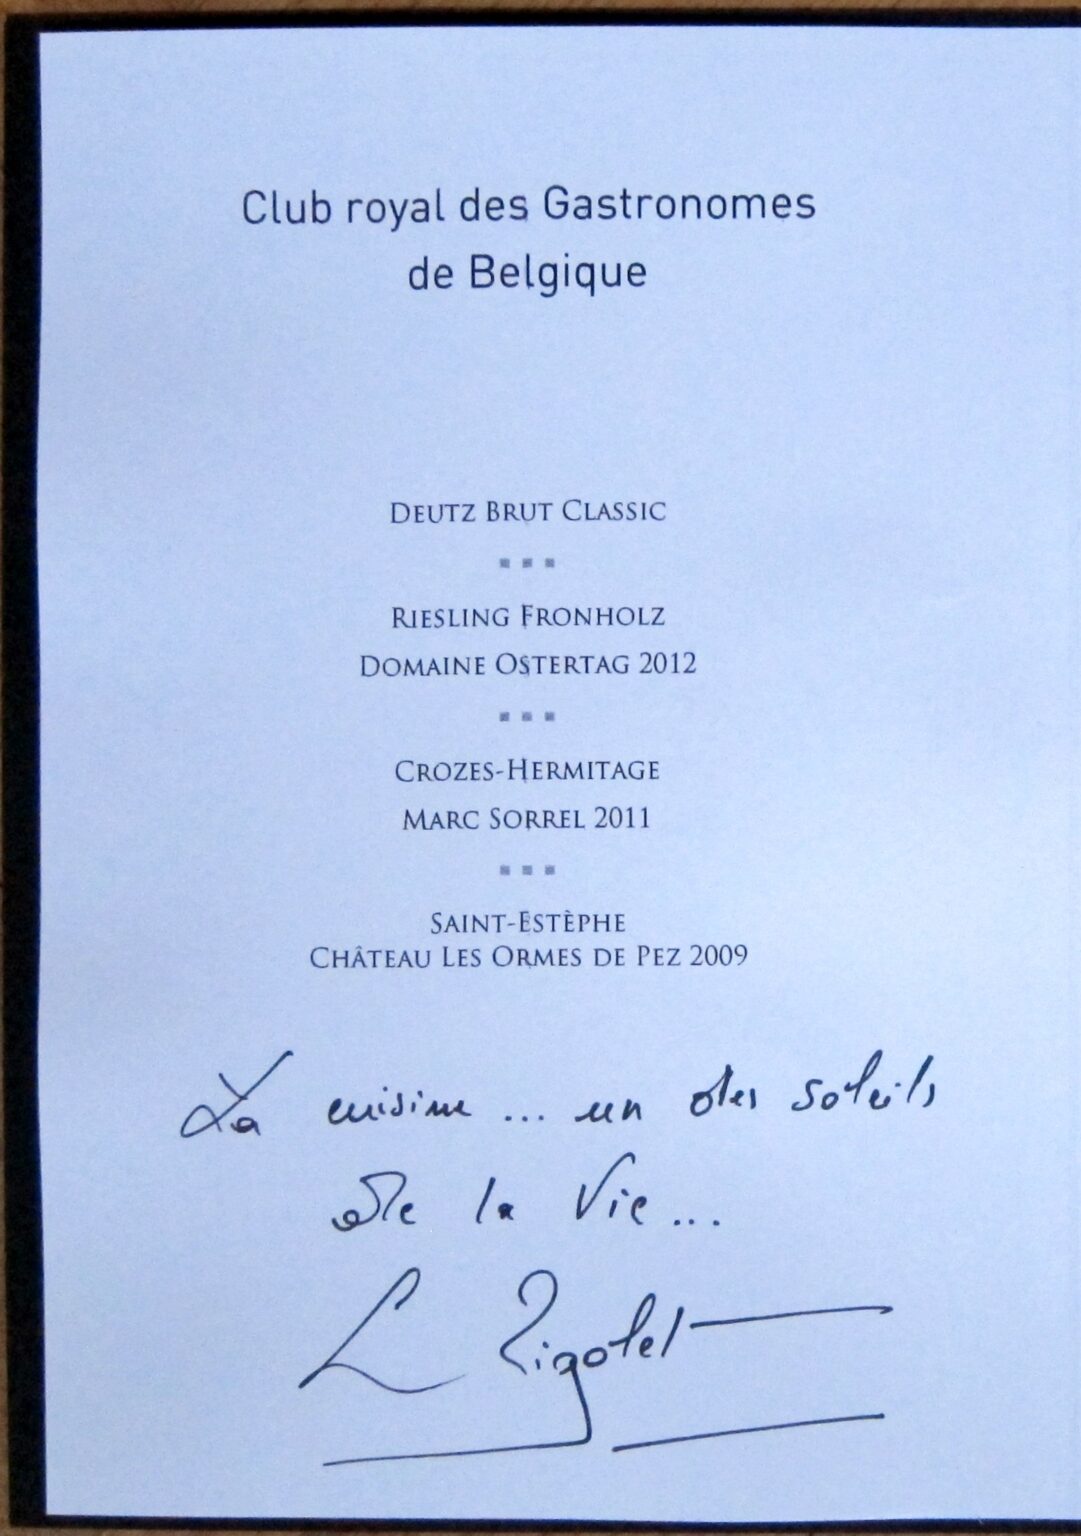 Club royal des Gastronomes
de Belgique
DEUTZ BRUT CLASSIC
RIESLING FRONHOLZ
DOMAINE OSTERTAG 2012
CROZES-HERMITAGE
MARC SORREL 2011
SAINT-ESTÈPHE
CHÂTEAU LES ORMES DE PEZ 2009
La cuisine ... un des soleils
de la Vie ...
L Rigolet